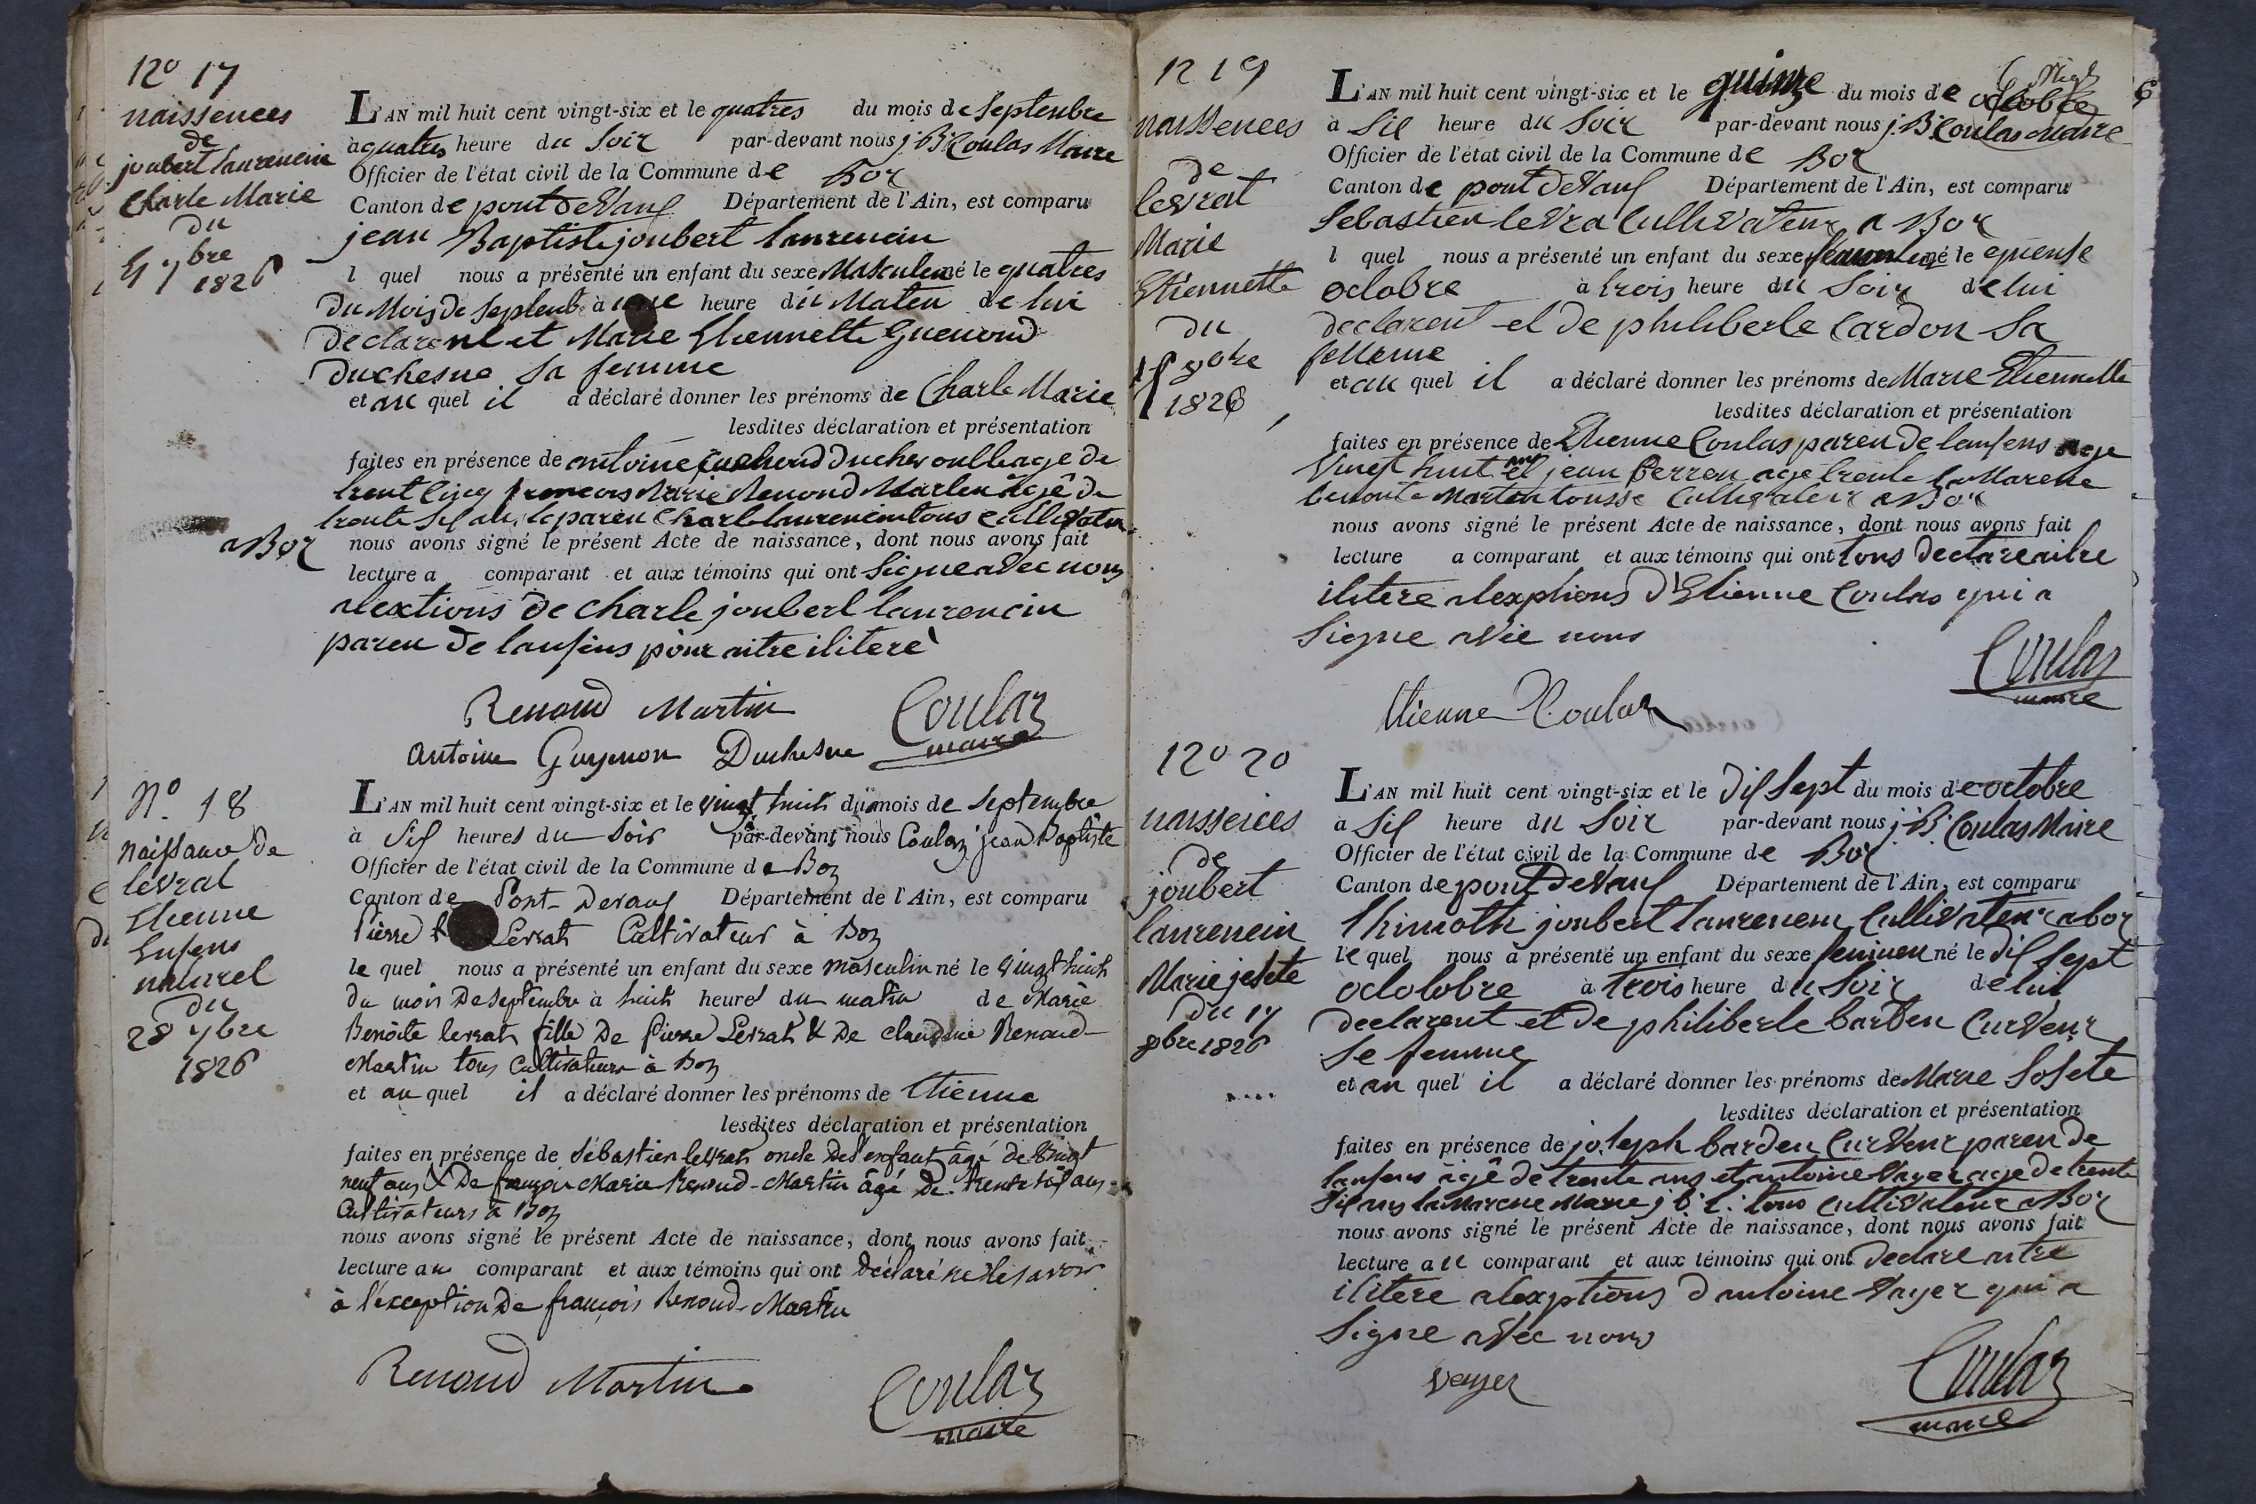 12o 17
naissences
de
joubert laurencin
Charle Marie
du
4 7bre
1826
L'AN mil huit cent vingt-six et le quatres du mois de septembre
à quatres heure du soir par-devant nous j. B. Coulas Maire
Officier de l'état civil de la Commune de Boz
Canton de pont deVaux Département de l'Ain, est comparu
jean Baptiste joubert laurencin
l quel nous a présenté un enfant du sexe Masculin né le quatres
du Mois de septemb à heure du Maten de lui
declarent et Marie Etiennette Guenond
duchesne sa femme
et au quel il a déclaré donner les prénoms de Charle Marie
lesdites déclaration et présentation
faites en présence de antoine age de
trent cinq francois Marie Renond Marten âgê de
trente six an, le paren Charle laurencin tous cultivateur
a Boz nous avons signé le présent Acte de naissance, dont nous avons fait
lecture a comparant et aux témoins qui ont signe avec nous
alextions de charle joubert laurencin
paren de lanfens pour aitre iliterè
Renoud Martin Coulaz
maire
antoine Guyenon Duchesne
No. 18
naissance de
lévrat
Etienne
Enfens
naturel
du
28 7bre
1826
L'AN mil huit cent vingt-six et le vingt huit du mois de septembre
à six heures du soir par-devant nous Coulaz jean Baptiste
Officier de l'état civil de la Commune de Boz
Canton de Pont-Devaux Département de l'Ain, est comparu
Pierre Levrat Cultivateur à Boz
le quel nous a présenté un enfant du sexe masculin né le vingt huit
du mois de septembre à huit heures du matin de Marie
Benoite levrat fille De pierre Levrat & De claudine Renoud
Martin tous Cultivateurs à Boz
et au quel il a déclaré donner les prénoms de Etienne
lesdites déclaration et présentation
faites en présence de sébastien levrat oncle de l'enfant âgé de vingt
neuf ans & De françois Marie Renoud-Martin âgé de trente six ans
Cultivateurs à Boz
nous avons signé le présent Acte de naissance, dont nous avons fait
lecture au comparant et aux témoins qui ont déclaré ne le savoir
à l'exception De françois Renoud-Martin
Renoud Martin Coulaz
maire
12 19
naissences
de
levrat
Marie
Etiennette
du
15 8bre
1826
6
L'AN mil huit cent vingt-six et le quinze du mois de octobre
à six heure du soir par-devant nous j. B. Coulas Maire
Officier de l'état civil de la Commune de Boz
Canton de pont deVaux Département de l'Ain, est comparu
sebastien leVra CulliVateur a Boz
l quel nous a présenté un enfant du sexe né le quense
octobre à trois heure du soir de lui
declarent et de philiberte Cardon sa
femme
et au quel il a déclaré donner les prénoms de Marie Etiennette
lesdites déclaration et présentation
faites en présence de Etienne Coulas paren de lanfens age
vingt huit ans et jean Perren age trente
benoite Marten tousse Cultivateur a Boz
nous avons signé le présent Acte de naissance, dont nous avons fait
lecture a comparant et aux témoins qui ont tous declare aitre
ilitere alexptions d'Etienne Coulas qui a
signe avec nous
Etienne Coulaz Coulaz
maire
12o 20
naisseices
de
joubert
laurencin
Marie josete
du 17
8bre 1826
L'AN mil huit cent vingt-six et le dix sept du mois de octobre
à six heure du soir par-devant nous j. B. Coulas Maire
Officier de l'état civil de la Commune de Boz
Canton de pont deVaux Département de l'Ain, est comparu
thimoth joubert laurencin CulliVateur a boz
le quel nous a présenté un enfant du sexe feminen né le dix sept
octolobre à trois heure du soir de lui
declarent et de philiberte barden CurVeur
se femme
et au quel il a déclaré donner les prénoms de Marie Josete
lesdites déclaration et présentation
faites en présence de joseph barden CurVeur paren de
lanfens âgê de trente ans et antoine Vayer age de trente
six ans j. B. C. tous CulliVateur a Boz
nous avons signé le présent Acte de naissance, dont nous avons fait
lecture au comparant et aux témoins qui ont declare aitre
ilitere alexptions d antoine Vayer qui a
signe avec nous
vayer Coulaz
maire